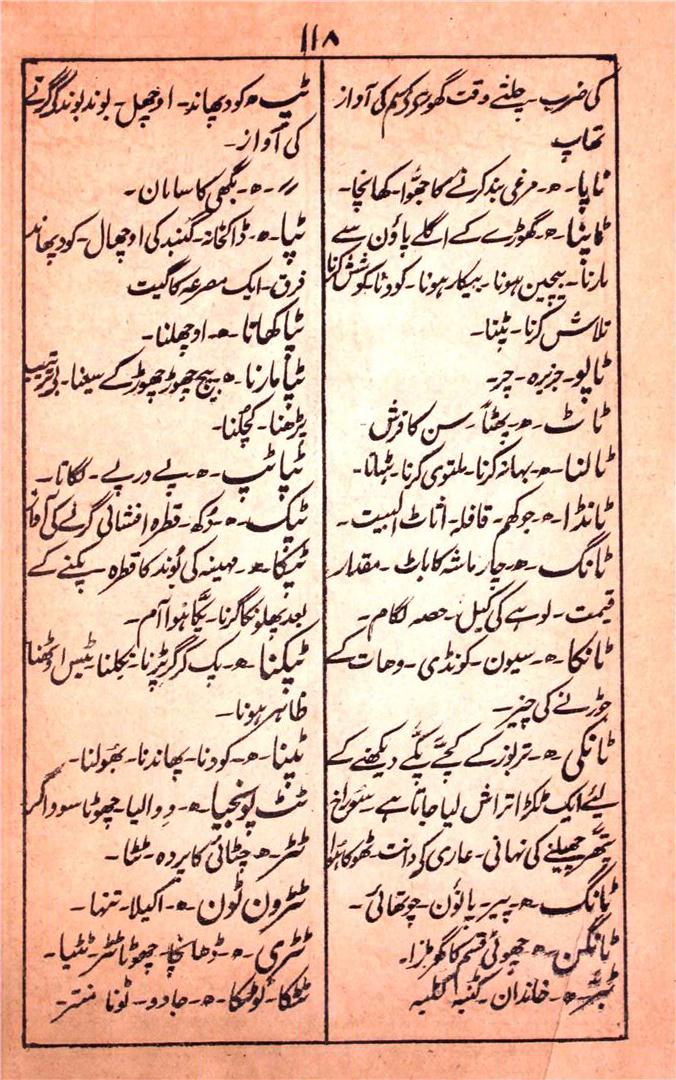 ۱۱۸
کی ضرب۔ چلتے وقت گھوڑے کے سم کی آواز
تھاپ
ٹاپا۔ ھ۔ مرغی بند کرنے کا جھوّا۔ کھانچا۔
ٹاپنا۔ ھ۔ گھوڑے کے اگلے پاؤں سے
مارنا۔ بیچین ہونا۔ بیکار ہونا۔ کودنا کوشش کرنا
تلاش کرنا۔ پٹنا۔
ٹاپو۔ جزیرہ۔ چر۔
ٹاٹ۔ ھ۔ پھٹا۔ سن کا فرش
ٹالنا۔ ھ۔ بہانہ کرنا۔ ملتوی کرنا۔ ہٹانا۔
ٹانڈا۔ ھ۔ جوکھم۔ قافلہ۔ اثاث البیت۔
ٹانک۔ ھ۔ چار ماشہ کا باٹ۔ مقدار
قیمت۔ لوہے کی کیل۔ حصہ لگام۔
ٹانکا۔ ھ۔ سیون۔ کونڈی۔ دھات کے
جوڑنے کی چیز۔
ٹانکی۔ ھ۔ تربوز کے کچے پکے دیکھنے کے
لیئے ایک ٹکڑا تراش لیا جاتا ہے۔ سوراخ
پتھر چھیلنے کی نہانی۔ عاری کی دانت۔ ٹھوکا ہوا
ٹانگ۔ ھ۔ پیر۔ پاؤں۔ چوتھائی۔
ٹانگن۔ ھ۔ چھوٹی قسم کا گھوڑا۔
ٹبر۔ ھ۔ خاندان۔ کنبہ
ٹپ۔ ھ۔ کود پھاند۔ اوچھل۔ بوند بوند گرنے
کی آواز۔
〃۔ ھ۔ بگھی کا سامان۔
ٹپا۔ ھ۔ ڈاکخانہ۔ گنبد کی اوچھال۔ کود پھاند
فرق۔ ایک مصرعہ کا گیت
ٹپا کھانا۔ ھ۔ اوچھلنا۔
ٹپا مارنا۔ ھ۔ بیچ چھوڑ چھوڑ کے سینا۔ بے ترتیب
پڑھنا۔ کچلنا۔
ٹپاٹپ۔ ھ۔ پے در پے۔ لگاتا۔
ٹپک۔ ھ۔ دُکھ۔ قطرہ افشانی گرنے کی آواز
ٹپکا۔ ھ۔ مہینہ کی بُوند کا قطرہ پکنے کے
بعد پھلونکا گرنا۔ پکا ہوا آم۔
ٹپکنا۔ ھ۔ پک کر گر پڑنا۔ نکلنا۔ ٹیس اوٹھنا
ظاہر ہونا۔
ٹپنا۔ ھ۔ کودنا۔ پھاندنا۔ بھولنا۔
ٹٹ پونجیا۔ ھ۔ دوالیا۔ چھوٹا سوداگر
ٹٹر۔ ھ۔ چٹائی کا پردہ۔ ٹٹا۔
ٹٹرون ٹون۔ ھ۔ اکیلا۔ تنہا۔
ٹٹری۔ ھ۔ ڈھانچا۔ چھوٹا ٹٹر۔ ٹٹیا۔
ٹٹکا۔ ٹوٹکا۔ ھ۔ جادو۔ ٹونا منتر۔